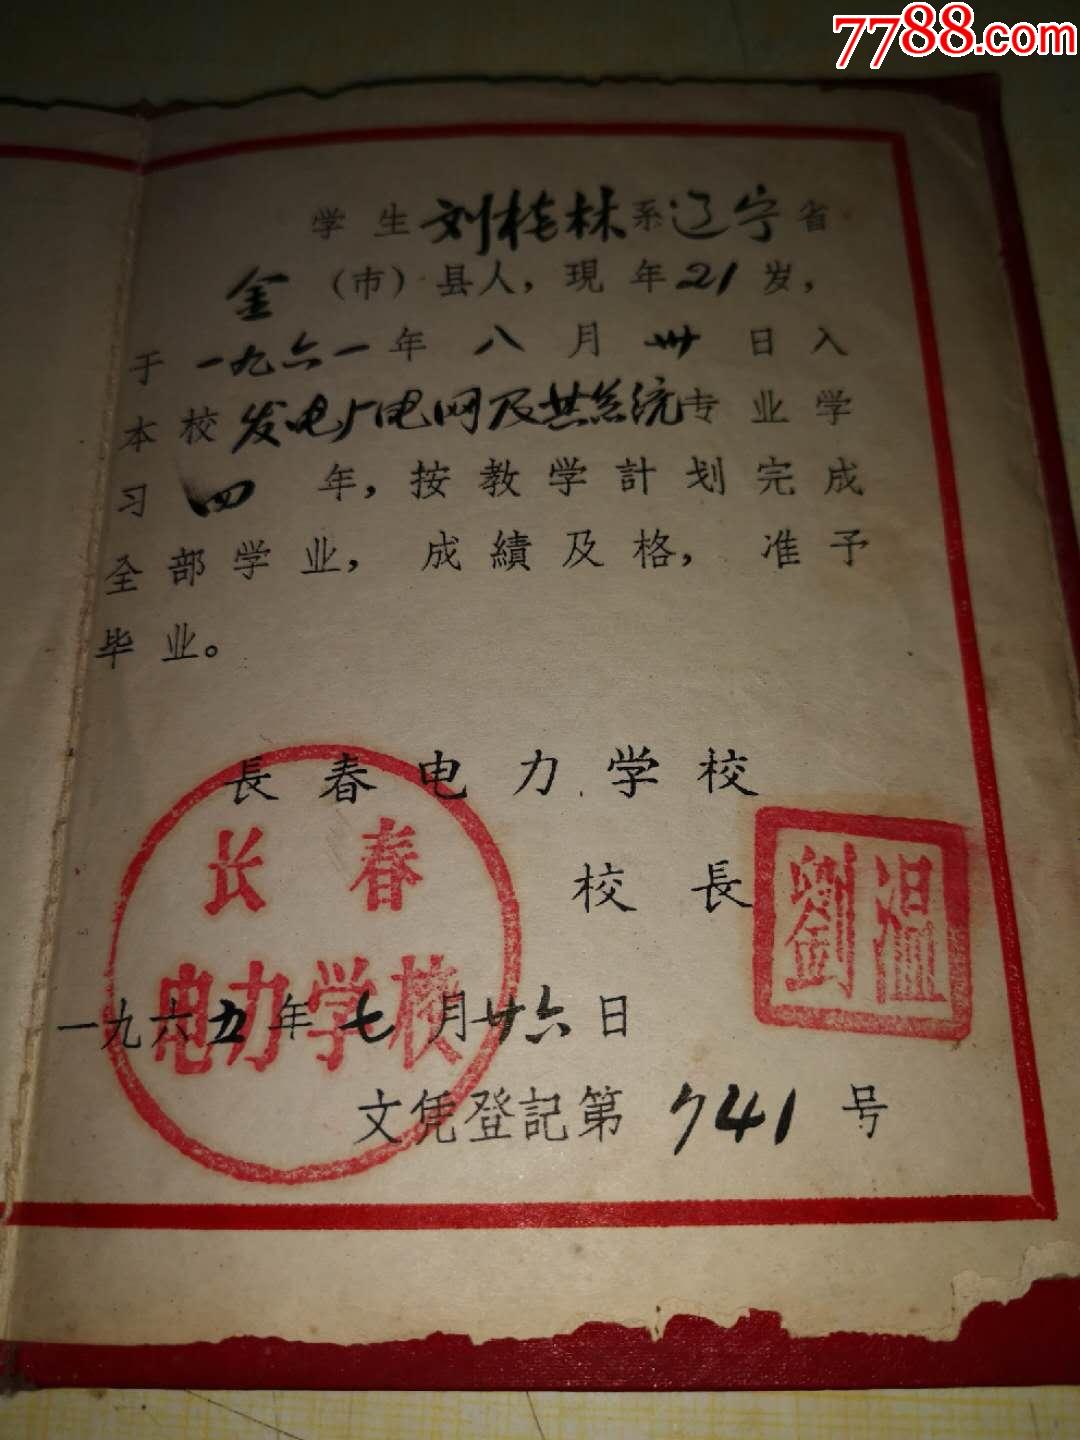 7788.com
学生刘桂林系辽宁省
金（市）县人，現年21岁，
于一九六一年八月卅日入
本校发电厂电网及其系统专业学
习四年，按教学計划完成
全部学业，成績及格，准予
毕业。
長春电力学校
长春
电力学校
校長
劉温
一九六五年七月廿六日
文凭登記第741号